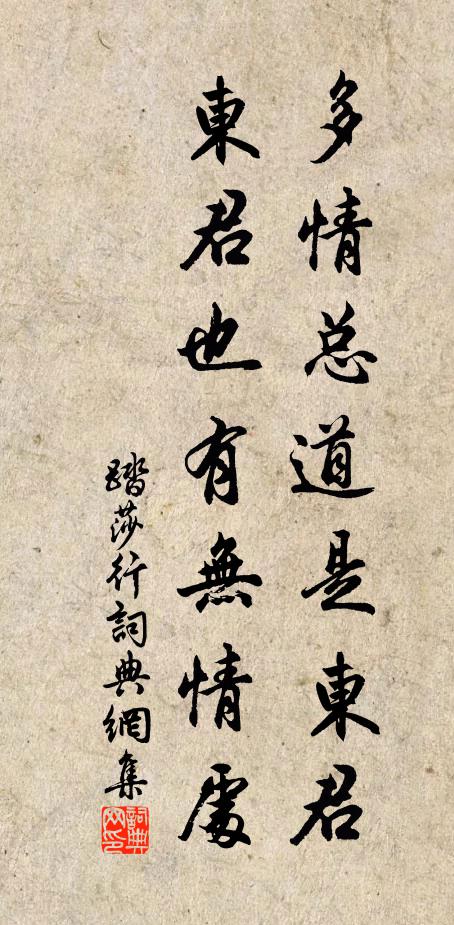 多情总道是東君
東君也有無情處
踏莎行詞典網集
詞典网印